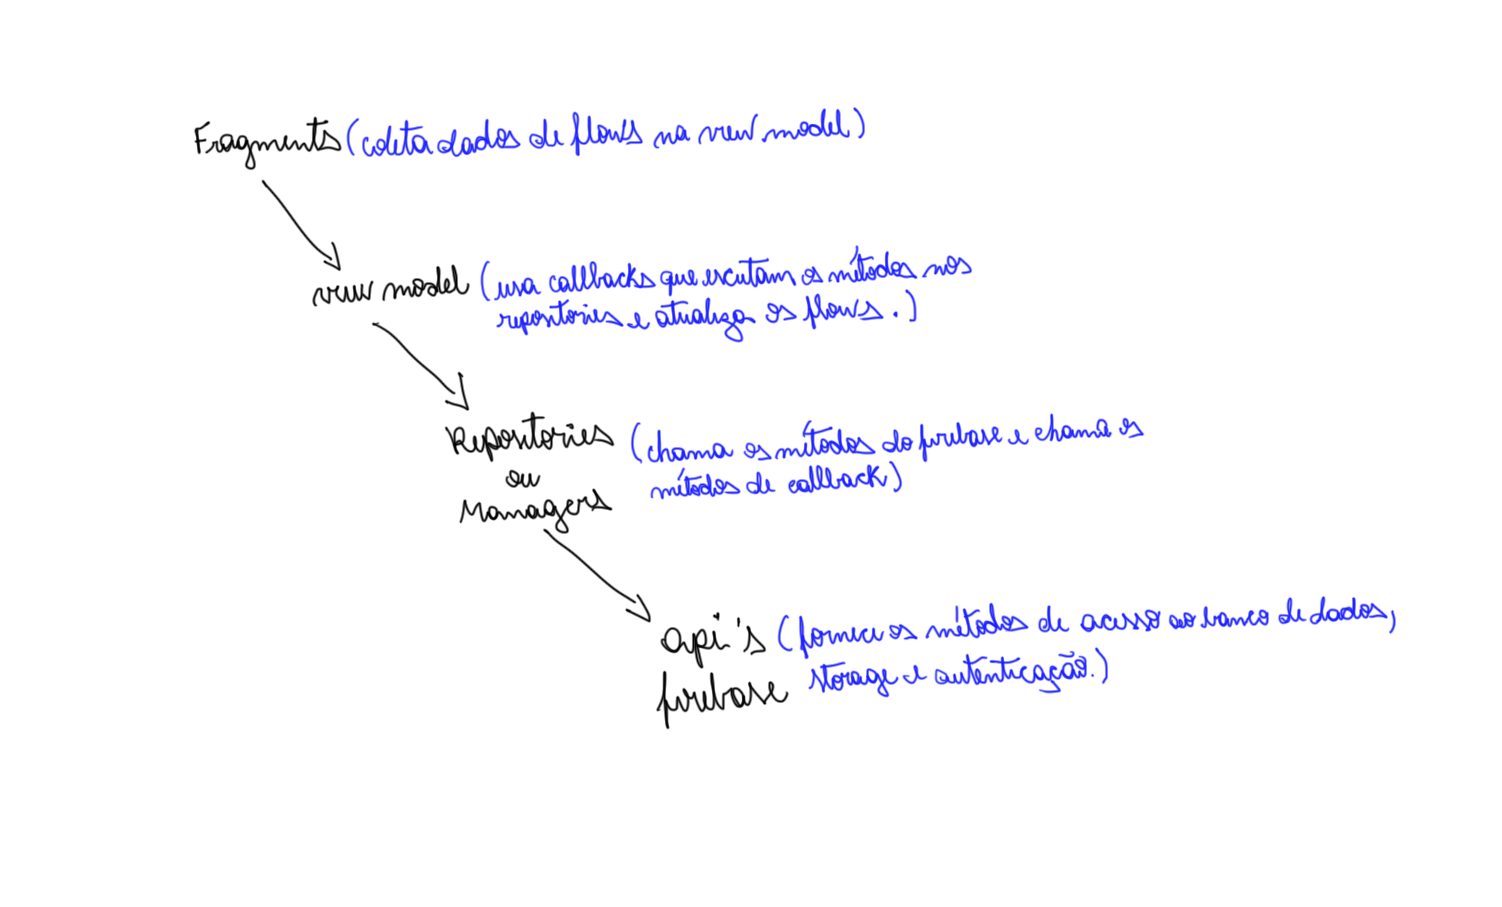 Fragments (coleta dados de flows na view model)
view model (usa callbacks que escutam os métodos nos
repositories e atualiza os flows.)
Repositories (chama os métodos do firebase e chama os
ou
métodos de callback)
Managers
api's (fornece os métodos de acesso ao banco de dados,
firebase storage e autenticação.)